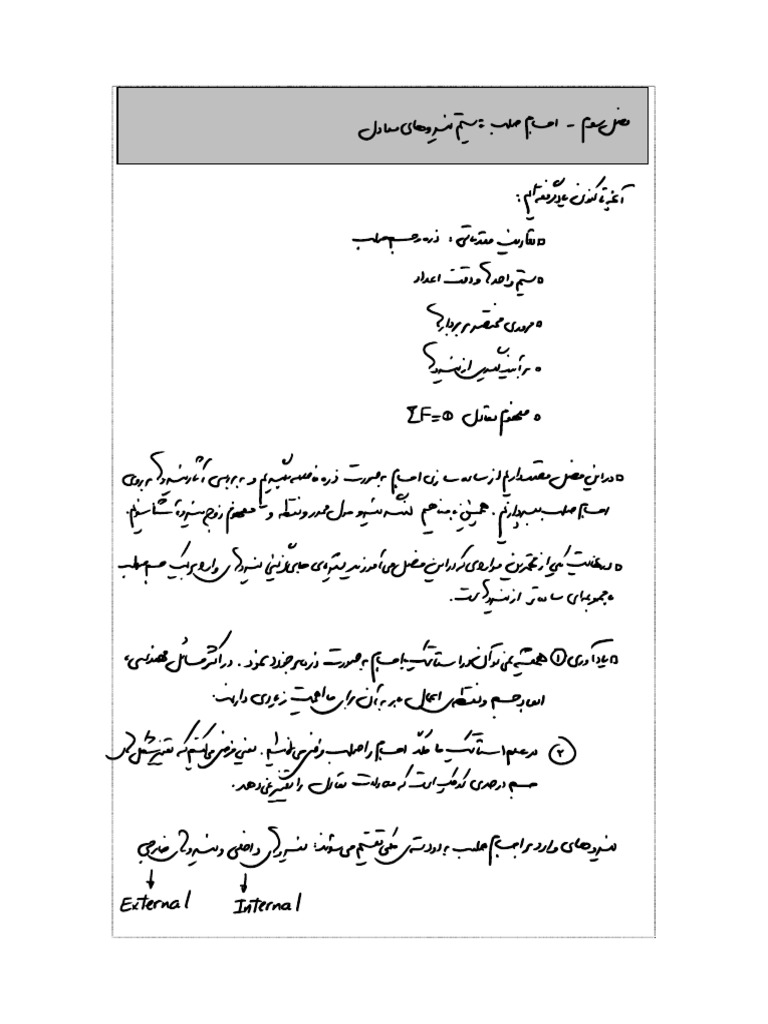 فصل سوم - اجسام صلب : سیستم نیروهای معادل
آنچه تا کنون یاد گرفته ایم :
تعاریف مقدماتی : ذره و جسم صلب
سیستم واحدها و دقت اعداد
مروری مختصر بر بردارها
برآیندگیری از نیروها
مفهوم تعادل ΣF=0
در این فصل قصد داریم از ساده سازی اجسام به صورت ذره فاصله بگیریم و به بررسی آثار نیروها بر روی
اجسام صلب بپردازیم . همچنین با مفاهیم لنگر نیرو حول محور و نقطه و مفهوم زوج نیرو آشنا شویم .
در نهایت یکی از مهمترین مواردی که در این فصل می آموزیم جایگزینی نیروهای وارد بر یک جسم صلب
با مجموعه ای ساده تر از نیروها است .
یادآوری ۱ همیشه نمی توان در استاتیک با اجسام به صورت ذره برخورد نمود . در اکثر مسائل مهندسی ،
ابعاد جسم و نقطه ی اعمال نیرو به آن برای ما اهمیت زیادی دارند .
۲ در علم استاتیک ما کلیه اجسام را صلب فرض می کنیم . یعنی فرض می کنیم که تغییر شکل های
جسم در حدی کوچک است که معادلات تعادل را تغییر نمی دهد .
نیروهای وارد بر اجسام صلب به دو دسته ی کلی تقسیم می شوند : نیروهای داخلی و نیروهای خارجی
External Internal